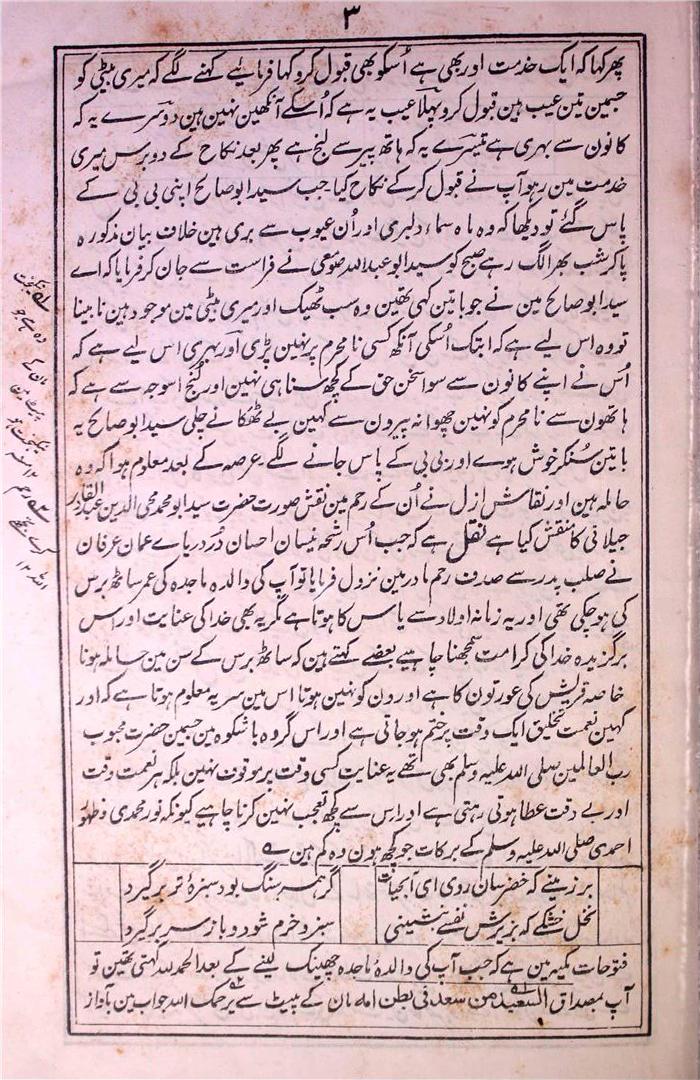 ۳
پھر کہا کہ ایک خدمت اور بھی ہے اُسکو بھی قبول کرو کہا فرمائیے کہنے لگے کہ میری بیٹی کو
جسمین تین عیب ہین قبول کرو پہلا عیب یہ ہے کہ اُسکے آنکھین نہین ہین دوسرے یہ کہ
کانون سے بہری ہے تیسرے یہ کہ ہاتھ پیر سے لنج ہے پھر بعد نکاح کے دو برس میری
خدمت مین رہو آپ نے قبول کرکے نکاح کیا جب سید ابو صالح اپنی بی بی کے
پاس گئے تو دیکھا کہ وہ ماہ سماء دلبری اور اُن عیوب سے بری ہین خلاف بیان مذکورہ
پاکر شب بھر الگ رہے صبح کو سید ابو عبد اللہ صومعی نے فراست سے جان کر فرمایا کہ اے
سید ابو صالح مین نے جو باتین کہی تھین وہ سب ٹھیک اور میری بیٹی مین موجود ہین نابینا
تو وہ اس لیے ہے کہ ابتک اُسکی آنکھ کسی نامحرم پر نہین پڑی اور بہری اس لیے ہے کہ
اُس نے اپنے کانون سے سوا سخن حق کے کچھ سنا ہی نہین اور لُنج اسوجہ سے ہے کہ
ہاتھون سے نامحرم کو نہین چھوا نہ پیرون سے کہین بے ٹھکانے چلی سید ابو صالح یہ
باتین سُنکر خوش ہوے اور بی بی کے پاس جانے لگے عرصہ کے بعد معلوم ہوا کہ وہ
حاملہ ہین اور نقاش ازل نے اُن کے رحم مین نقش صورت حضرت سید ابو محمد محی الدین عبد القادر
جیلانی کا منقش کیا ہے نقل ہے کہ جب اُس رشحہ نیسان احسان دُر دریاے عمان عرفان
نے صلب پدر سے صدف رحم مادر مین نزول فرمایا تو آپ کی والدہ ماجدہ کی عمر ساٹھ برس
کی ہو چکی تھی اور یہ زمانہ اولاد سے یاس کا ہوتا ہے مگر یہ بھی خدا کی عنایت اور اس
برگزیدہ خدا کی کرامت سمجھنا چاہیے بعضے کہتے ہین کہ ساٹھ برس کے سن مین حاملہ ہونا
خاصہ قریش کی عورتون کا ہے اور ون کو نہین ہوتا اس مین سر یہ معلوم ہوتا ہے کہ اور
کہین نعمت تخلیق ایک وقت پر ختم ہو جاتی ہے اور اس گروہ با شکوہ مین جسمین حضرت محبوب
رب العالمین صلی اللہ علیہ وسلم بھی تھے یہ عنایت کسی وقت پر موقوف نہین بلکہ ہر نعمت وقت
اور بے وقت عطا ہوتی رہتی ہے اور اس سے کچھ تعجب نہین کرنا چاہیے کیونکہ نور محمدی و ظہور
احمدی صلی اللہ علیہ وسلم کے برکات جو کچھ ہون وہ کم ہین
بر زمینے کہ خضر سان روی ای آبحیات گر ہمہ سنگ بود سبزۂ تر بر گیرد
نخل خشکے کہ بزیرش نفسے بنشینی سبز و خرم شود و باز سر بر گیرد
فتوحات کبیر مین ہے کہ جب آپ کی والدۂ ماجدہ چھینک لینے کے بعد الحمد للہ کہتی تھین تو
آپ بمصداق السعید من سعد فی بطن امہ مان کے پیٹ سے یرحمک اللہ جواب مین بآواز